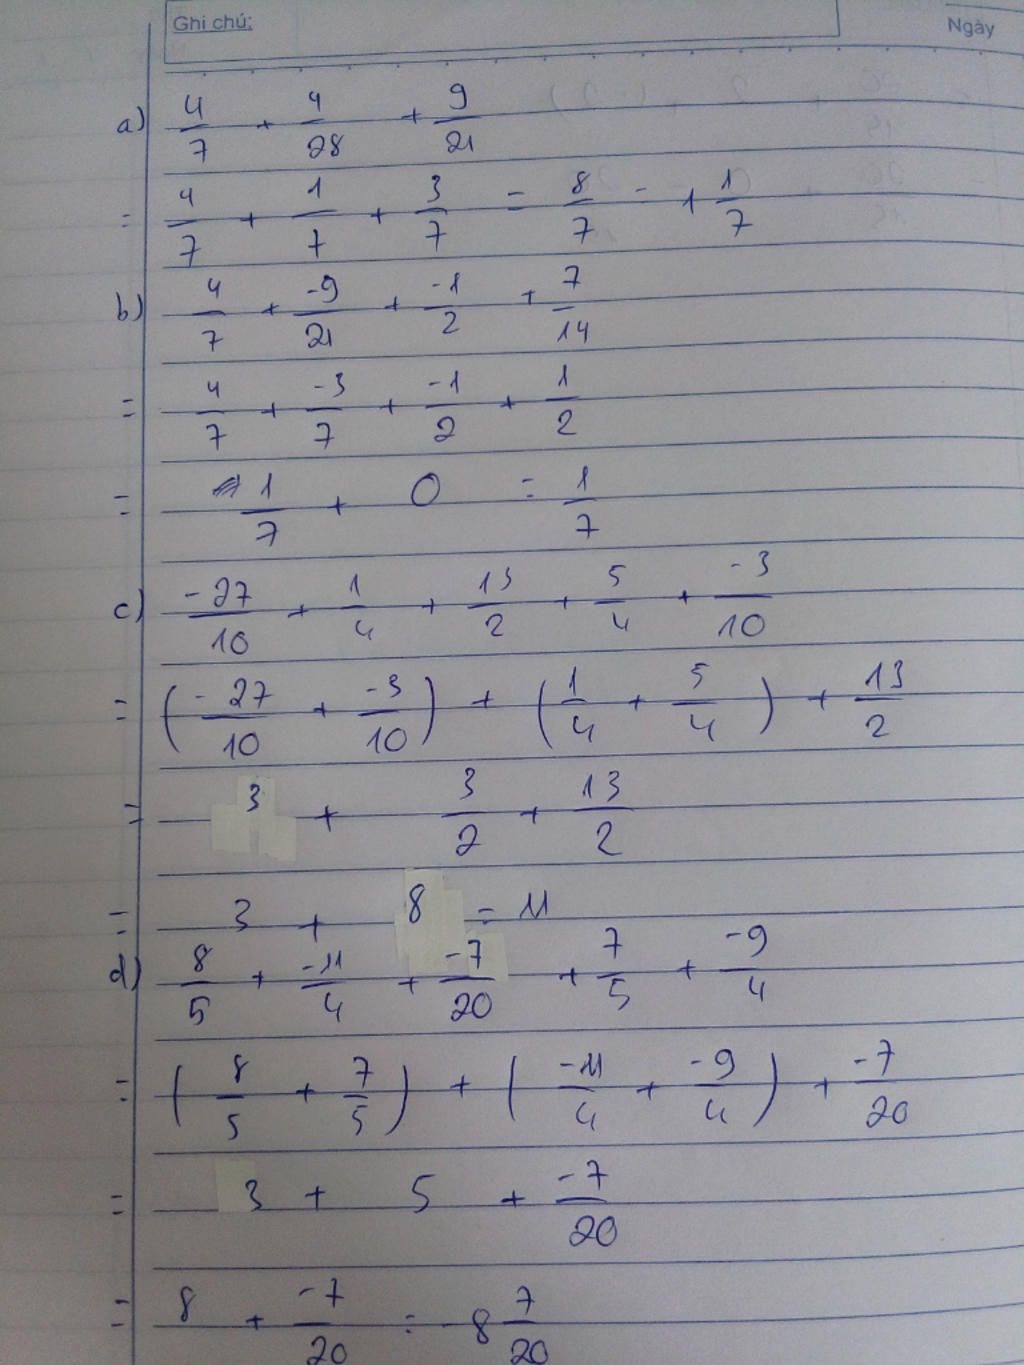 Ghi chú:
Ngày
a) 4/7 + 4/28 + 9/21
= 4/7 + 1/7 + 3/7 = 8/7 = 1 1/7
b) 4/7 + -9/21 + -1/2 + 7/14
= 4/7 + -3/7 + -1/2 + 1/2
= 1/7 + 0 = 1/7
c) -27/10 + 1/4 + 13/2 + 5/4 + -3/10
= (-27/10 + -3/10) + (1/4 + 5/4) + 13/2
= 3 + 3/2 + 13/2
= 3 + 8 = 11
d) 8/5 + -11/4 + -7/20 + 7/5 + -9/4
= (8/5 + 7/5) + (-11/4 + -9/4) + -7/20
= 3 + 5 + -7/20
= 8 + -7/20 = -8 7/20